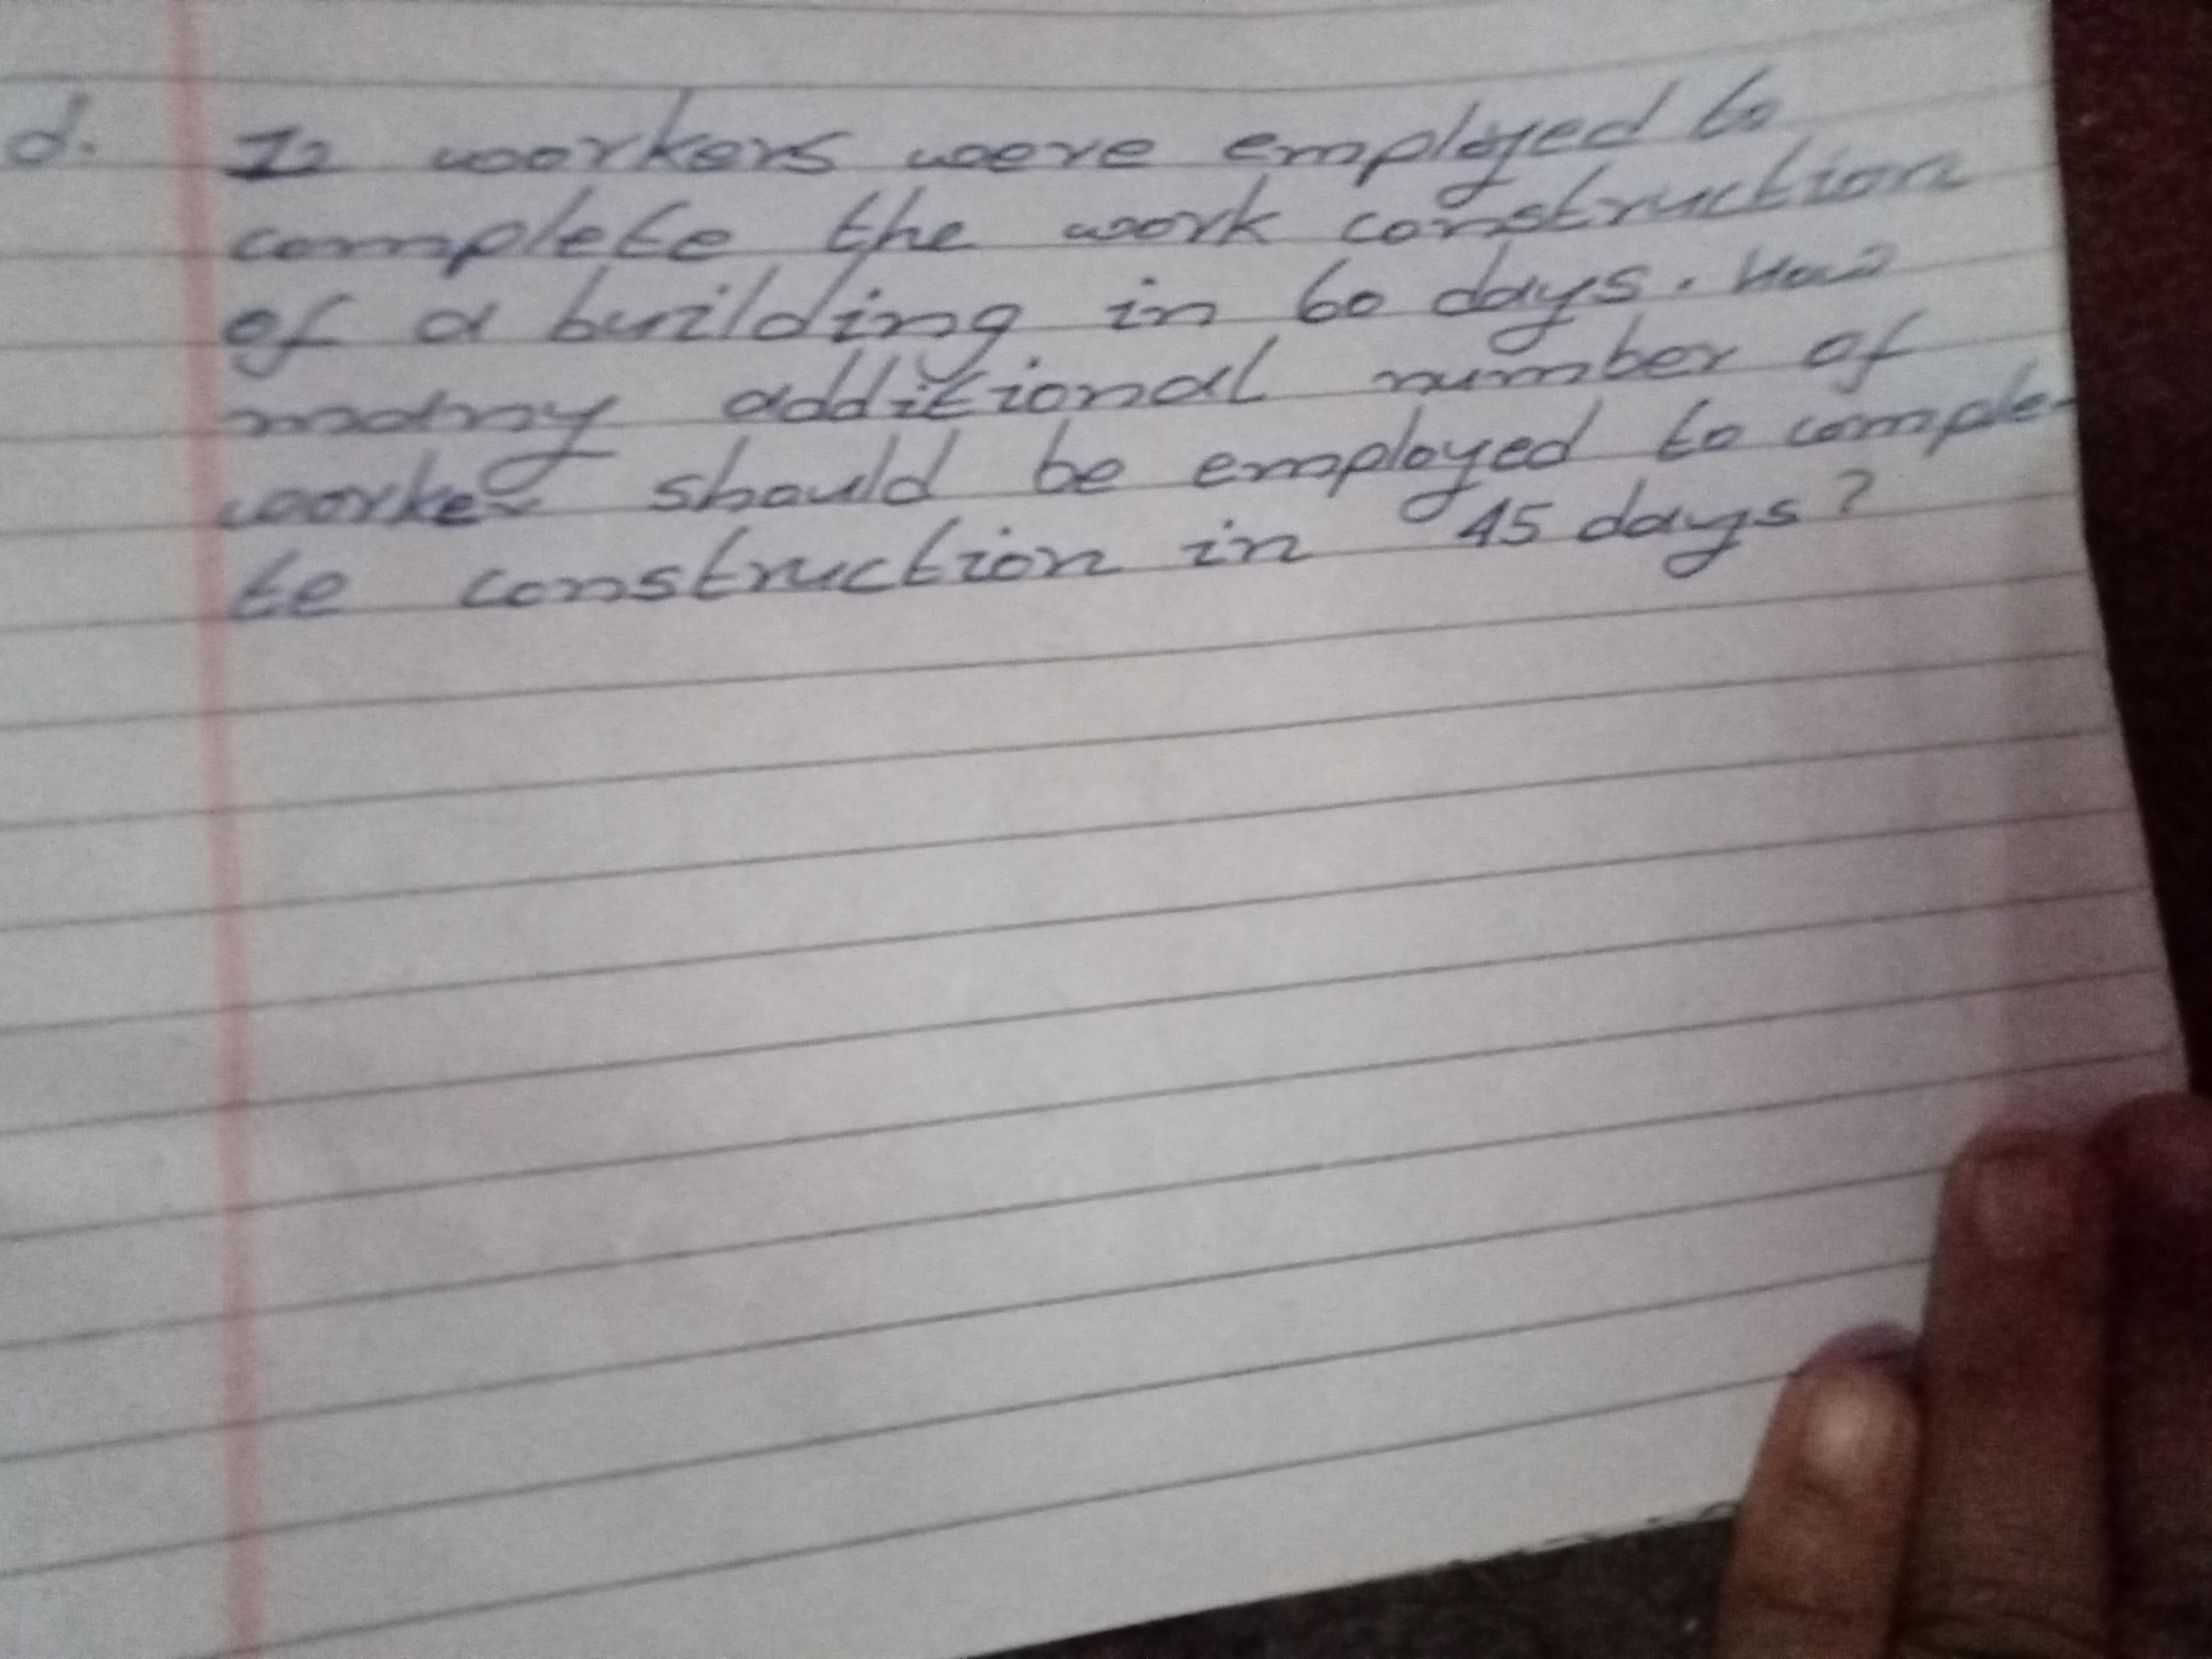 d. 12 workers were employed to
complete the work construction
of a building in 60 days. How
many additional number of
worker should be employed to comple-
te construction in 45 days?